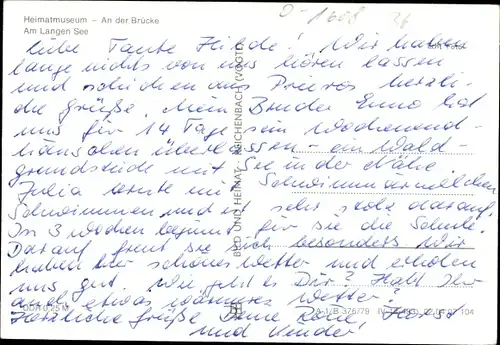 Heimatmuseum – An der Brücke
Am Langen See
Liebe Tante Hilde! Wir haben
lange nichts von uns hören lassen
und schicken aus Prieros herzli-
che Grüße. Mein Bruder Enno hat
uns für 14 Tage sein Wochenend-
häuschen überlassen - ein Wald-
grundstück mit See in der Nähe.
Julia lernte mit Schwimmärmelchen
Schwimmen und ist sehr stolz darauf.
In 3 Wochen beginnt für sie die Schule.
Darauf freut sie sich besonders. Wir
haben hier schönes Wetter und erholen
uns gut. Wie geht es Dir? Habt Ihr
auch etwas wärmeres Wetter?
Herzliche Grüße Deine Rose Horst
und Kinder!
BILD UND HEIMAT REICHENBACH (VOGTL)
A 1/B 376/79 IV-14-483 02 04 07 104